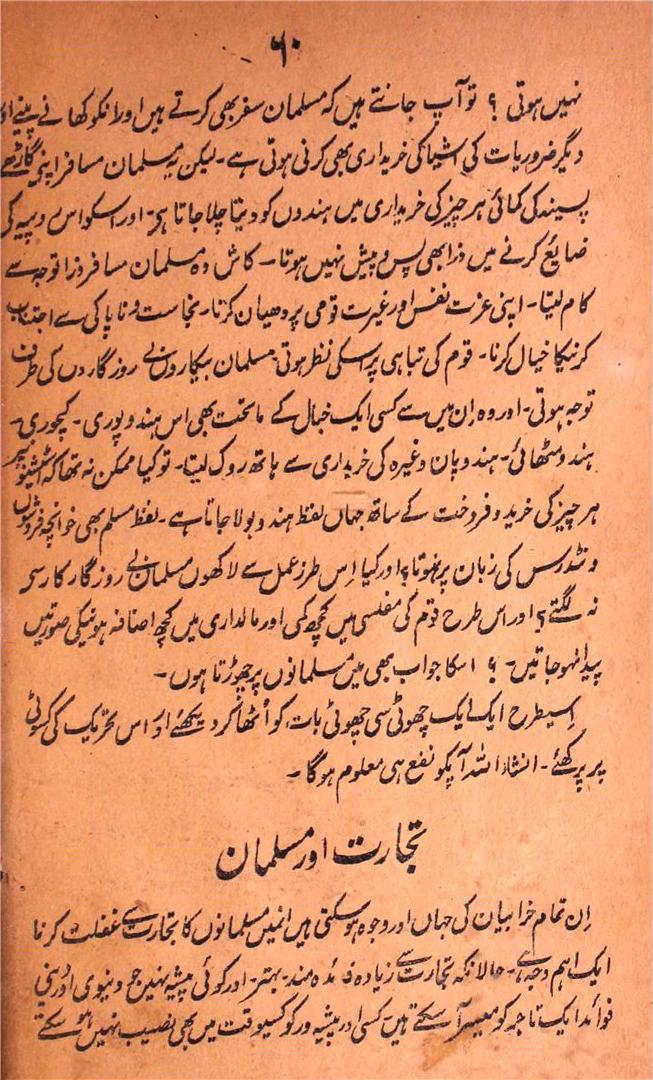 ۶۰
نہیں ہوتی ؟ تو آپ جانتے ہیں کہ مسلمان سفر بھی کرتے ہیں اور انکو کھانے پینے او
دیگر ضروریات کی اشیا کی خریداری بھی کرنی ہوتی ہے۔ لیکن یہ مسلمان مسافر اپنی گاڑھے
پسینہ کی کمائی ہر چیز کی خریداری میں ہندوں کو دیتا چلا جاتا ہی۔ اور اسکو اس روپیہ کی
ضایع کرنے میں ذرا بھی پس و پیش نہیں ہوتا۔ کاش وہ مسلمان مسافر ذرا توجہ سے
کام لیتا۔ اپنی عزت نفس اور غیرت قومی پر دھیان کرتا۔ نجاست و ناپاکی سے اجتناب
کرنیکا خیال کرتا۔ قوم کی تباہی پر اسکی نظر ہوتی مسلمان بیکاروں بے روزگاروں کی طرف
توجہ ہوتی۔ اور وہ اِن میں سے کسی ایک خیال کے ماتحت بھی اس ہندو پوری۔ کچوری۔
ہندو مٹھائی۔ ہندو پان وغیرہ کی خریداری سے ہاتھ روک لیتا۔ تو کیا ممکن نہ تھا کہ اسٹیشنونپر
ہر چیز کی خرید و فروخت کے ساتھ جہاں لفظ ہندو بولا جاتا ہے۔ لفظ مسلم بھی خوانچہ فروشوں
ونڈرس کی زبان پر نہوتا؟ اور کیا اِس طرز عمل سے لاکھوں مسلمان بے روزگار کار سی
نہ لگتے؟ اور اس طرح قوم کی مفلسی میں کچھ کمی اور مالداری میں کچھ اضافہ ہونیکی صورتیں
پیدا نہو جاتیں۔ ؟ اسکا جواب بھی میں مسلمانوں پر چھوڑتا ہوں۔
اِسیطرح ایک ایک چھوٹی سی چھوٹی بات کو اُٹھا کر دیکھئے اور اس تحریک کی کسوٹی
پر پرکھئے۔ انشاء اللہ آپکو نفع ہی معلوم ہوگا۔
تجارت اور مسلمان
اِن تمام خرابیان کی جہاں اور وجوہ ہو سکتی ہیں انمیں مسلمانوں کا تجارت سے غفلت کرنا
ایک اہم وجہ ہے۔ حالانکہ تجارت سے زیادہ فائدہ مند۔ بہتر۔ اور کوئی پیشہ نہیں جو دنیوی اور دینی
فوائد ایک تاجر کو میسر آ سکتے ہیں۔ کسی اور پیشہ ور کو کسیوقت میں بھی نصیب نہیں ہو سکتے